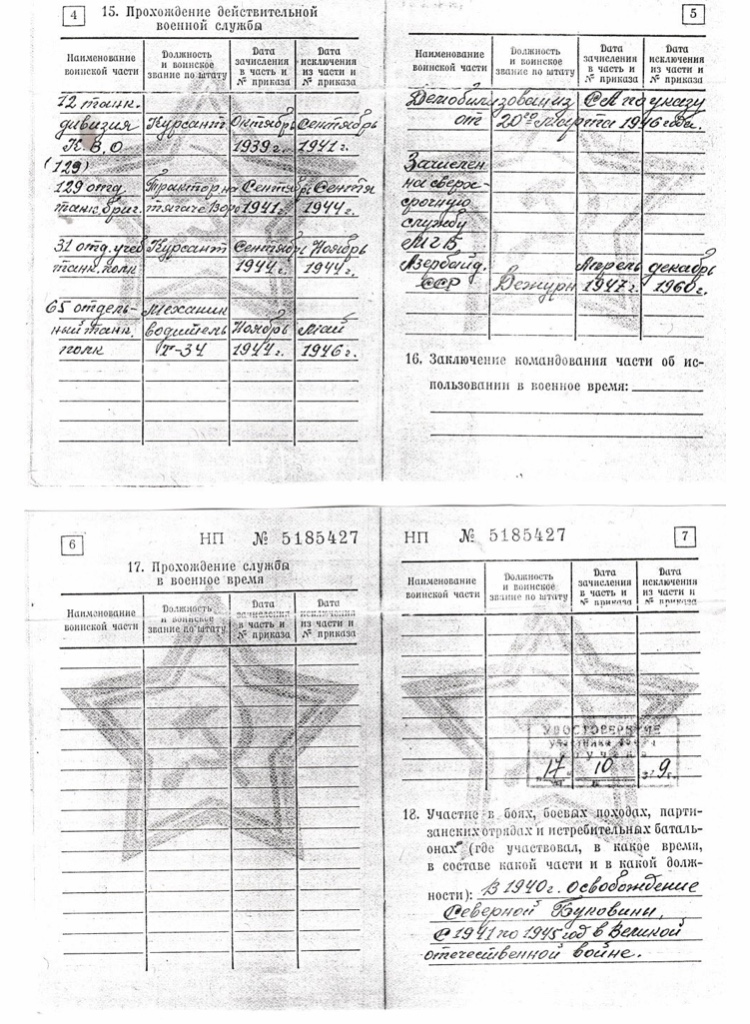 4
15. Прохождение действительной
военной службы
Наименование
воинской части
Должность
и воинское
звание по штату
Дата
зачисления
в часть и
№ приказа
Дата
исключения
из части и
№ приказа
12 танк.
дивизия Курсант Октябрь Сентябрь
К.В.О 1939 г. 1941 г.
(129)
129 отд. Тракторна Сентябрь Сентя
танк. бриг. тягаче 1941 г. 1944 г.
31 отд. учеб Курсант Сентябрь Ноябрь
танк. полк 1944 г. 1944 г.
65 отдель- Механик
ный танк. водитель Ноябрь Май
полк Т-34 1944 г. 1946 г.
5
Наименование
воинской части
Должность
и воинское
звание по штату
Дата
зачисления
в часть и
№ приказа
Дата
исключения
из части и
№ приказа
Демобилизован из СА по указу
от 20го марта 1946 года.
Зачислен
на сверх-
срочную
службу
МГБ
Азербайд. Апрель декабрь
ССР Дежурн 1947 г. 1960 г.
16. Заключение командования части об ис-
пользовании в военное время:
6
НП № 5185427
17. Прохождение службы
в военное время
Наименование
воинской части
Должность
и воинское
звание по штату
Дата
зачисления
в часть и
№ приказа
Дата
исключения
из части и
№ приказа
НП № 5185427
7
Наименование
воинской части
Должность
и воинское
звание по штату
Дата
зачисления
в часть и
№ приказа
Дата
исключения
из части и
№ приказа
УДОСТОВЕРЕНИЕ
Участника
17 10 9
18. Участие в боях, боевых походах, парти-
занских отрядах и истребительных баталь-
онах (где участвовал, в какое время,
в составе какой части и в какой долж-
ности): В 1940 г. Освобождение
Северной Буковины,
С 1941 по 1945 год в Великой
отечественной войне.